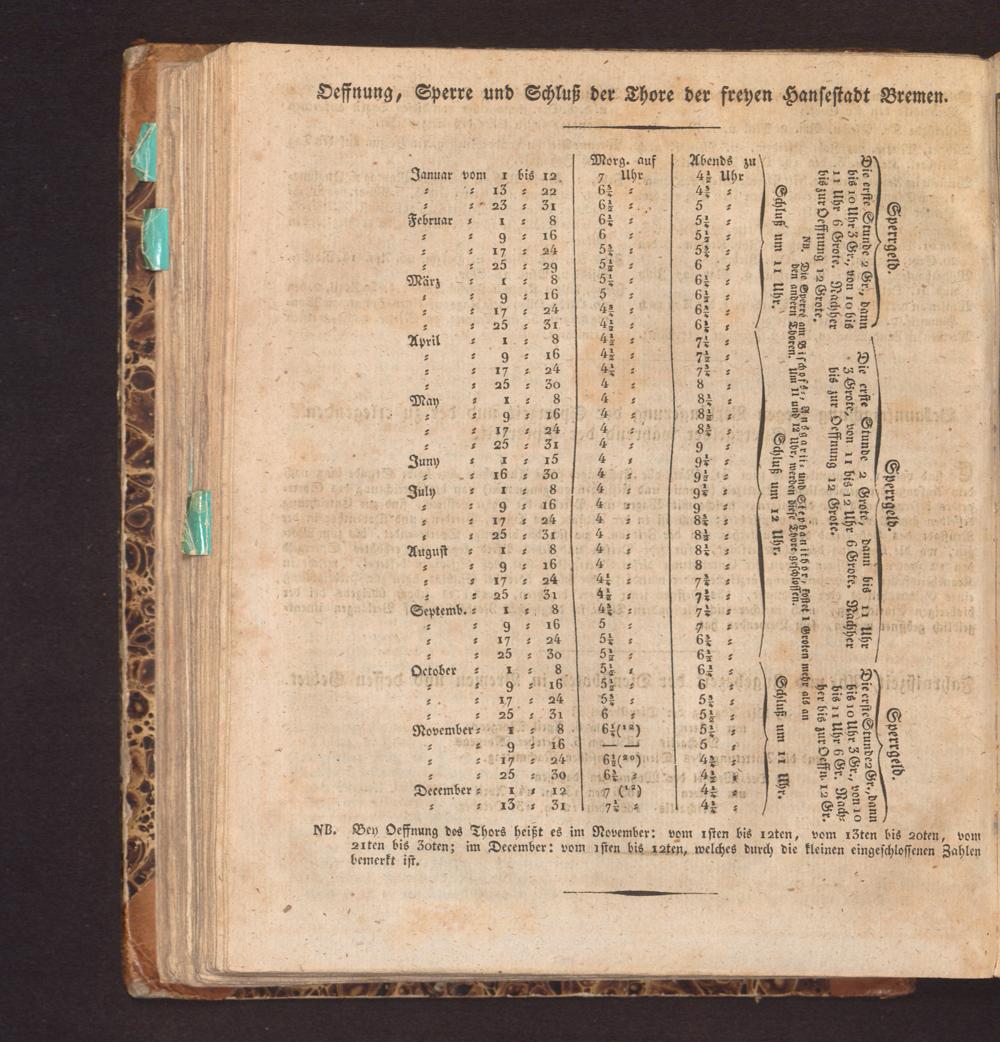 Oeffnung, Sperre und Schluß der Thore der freyen Hansestadt Bremen.
Morg. auf Abends zu
Januar vom 1 bis 12 7 Uhr 4½ Uhr
⸗ ⸗ 13 ⸗ 22 6¾ ⸗ 4¾ ⸗
⸗ ⸗ 23 ⸗ 31 6½ ⸗ 5 ⸗
Februar ⸗ 1 ⸗ 8 6¼ ⸗ 5¼ ⸗
⸗ ⸗ 9 ⸗ 16 6 ⸗ 5½ ⸗
⸗ ⸗ 17 ⸗ 24 5¾ ⸗ 5¾ ⸗
⸗ ⸗ 25 ⸗ 29 5½ ⸗ 6 ⸗
März ⸗ 1 ⸗ 8 5¼ ⸗ 6¼ ⸗
⸗ ⸗ 9 ⸗ 16 5 ⸗ 6½ ⸗
⸗ ⸗ 17 ⸗ 24 4¾ ⸗ 6¾ ⸗
⸗ ⸗ 25 ⸗ 31 4½ ⸗ 6¾ ⸗
April ⸗ 1 ⸗ 8 4½ ⸗ 7¼ ⸗
⸗ ⸗ 9 ⸗ 16 4½ ⸗ 7½ ⸗
⸗ ⸗ 17 ⸗ 24 4¼ ⸗ 7¾ ⸗
⸗ ⸗ 25 ⸗ 30 4 ⸗ 8 ⸗
May ⸗ 1 ⸗ 8 4 ⸗ 8¼ ⸗
⸗ ⸗ 9 ⸗ 16 4 ⸗ 8½ ⸗
⸗ ⸗ 17 ⸗ 24 4 ⸗ 8¾ ⸗
⸗ ⸗ 25 ⸗ 31 4 ⸗ 9 ⸗
Juny ⸗ 1 ⸗ 15 4 ⸗ 9¼ ⸗
⸗ ⸗ 16 ⸗ 30 4 ⸗ 9½ ⸗
July ⸗ 1 ⸗ 8 4 ⸗ 9¼ ⸗
⸗ ⸗ 9 ⸗ 16 4 ⸗ 9 ⸗
⸗ ⸗ 17 ⸗ 24 4 ⸗ 8¾ ⸗
⸗ ⸗ 25 ⸗ 31 4 ⸗ 8½ ⸗
August ⸗ 1 ⸗ 8 4 ⸗ 8¼ ⸗
⸗ ⸗ 9 ⸗ 16 4 ⸗ 8 ⸗
⸗ ⸗ 17 ⸗ 24 4¼ ⸗ 7¾ ⸗
⸗ ⸗ 25 ⸗ 31 4½ ⸗ 7½ ⸗
Septemb. ⸗ 1 ⸗ 8 4¾ ⸗ 7¼ ⸗
⸗ ⸗ 9 ⸗ 16 5 ⸗ 7 ⸗
⸗ ⸗ 17 ⸗ 24 5¼ ⸗ 6¾ ⸗
⸗ ⸗ 25 ⸗ 30 5½ ⸗ 6½ ⸗
October ⸗ 1 ⸗ 8 5½ ⸗ 6¼ ⸗
⸗ ⸗ 9 ⸗ 16 5½ ⸗ 6 ⸗
⸗ ⸗ 17 ⸗ 24 5¾ ⸗ 5¾ ⸗
⸗ ⸗ 25 ⸗ 31 6 ⸗ 5½ ⸗
November ⸗ 1 ⸗ 8 6¼(12) 5¼ ⸗
⸗ ⸗ 9 ⸗ 16 — — 5 ⸗
⸗ ⸗ 17 ⸗ 24 6½(20) 4¾ ⸗
⸗ ⸗ 25 ⸗ 30 6¾ ⸗ 4½ ⸗
December ⸗ 1 ⸗ 12 7 (12) 4¼ ⸗
⸗ ⸗ 13 ⸗ 31 7¼ ⸗ 4¼ ⸗
Sperrgeld.
Die erste Stunde 2 Gr., dann
bis 10 Uhr 3 Gr., von 10 bis
11 Uhr 6 Grote. Nachher
bis zur Oeffnung 12 Grote.
Schluß um 11 Uhr.
Sperrgeld.
Die erste Stunde 2 Grote, dann bis 11 Uhr
3 Grote, von 11 bis 12 Uhr 6 Grote. Nachher
bis zur Oeffnung 12 Grote.
NB. Die Sperre am Bischofs⸗, Ansgarii⸗ und Stephanithor, kostet 1 Groten mehr als an
den andern Thoren. Um 11 und 12 Uhr, werden diese Thore geschlossen.
Schluß um 12 Uhr.
Sperrgeld.
Die erste Stunde 2 Gr., dann
bis 10 Uhr 3 Gr., von 10
bis 11 Uhr 6 Gr. Nach⸗
her bis zur Oeffn. 12 Gr.
Schluß um 11 Uhr.
NB. Bey Oeffnung des Thors heißt es im November: vom 1sten bis 12ten, vom 13ten bis 20ten, vom
21ten bis 30ten; im December: vom 1sten bis 12ten, welches durch die kleinen eingeschlossenen Zahlen
bemerkt ist.